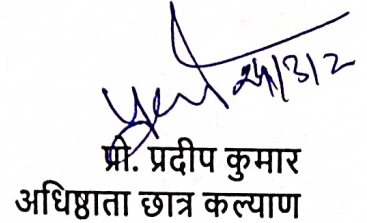 24/3/2
प्रो. प्रदीप कुमार
अधिष्ठाता छात्र कल्याण